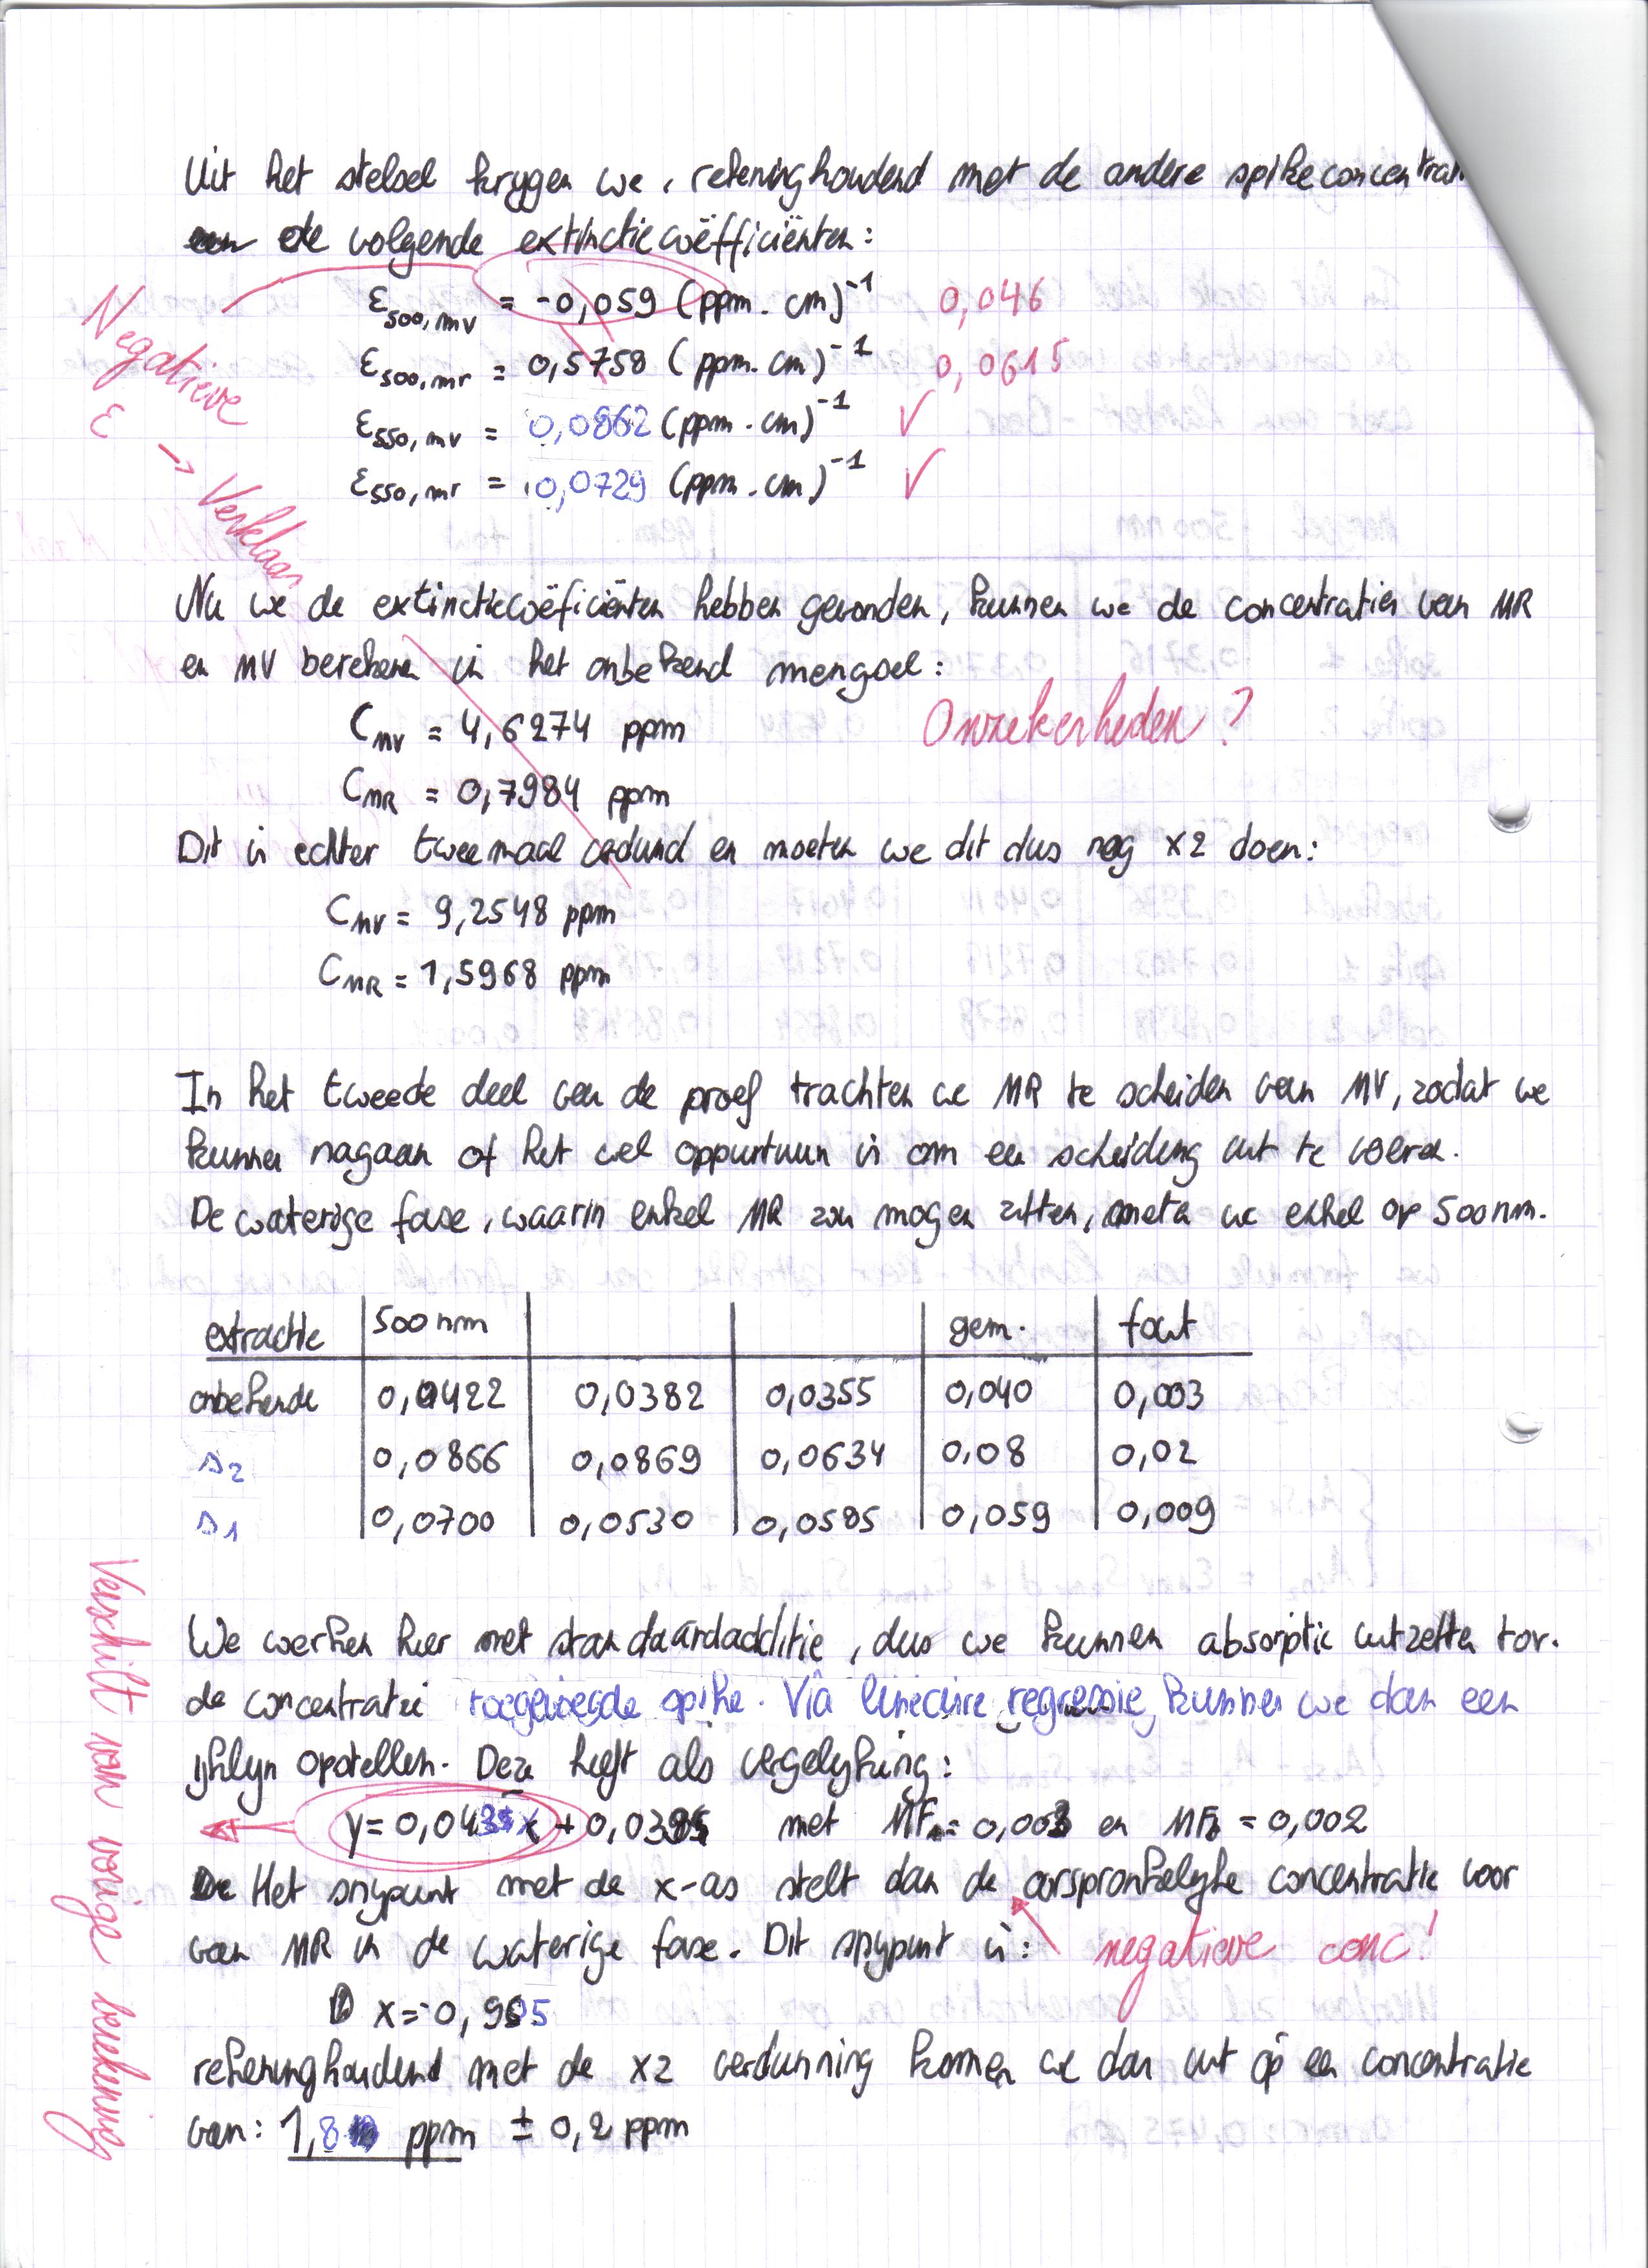 Uit het stelsel krygen we, rekeninghoudend met de andere spikeconcentrat
de volgende extinctiecoëfficiënten:
ε500,mv = -0,059 (ppm. cm)^-1 0,046
ε500,mr = 0,5758 (ppm. cm)^-1 0,0615
ε550,mv = 0,0862 (ppm. cm)^-1 ✓
ε550,mr = 0,0729 (ppm. cm)^-1 ✓
Negatieve
ε
→ Verklaar
Nu we de extinctiecoëficiënten hebben gevonden, kunnen we de concentraties van MR
en MV berekenen in het onbekend mengsel:
CMV = 4,6274 ppm
Onzekerheden?
CMR = 0,7984 ppm
Dit is echter tweemaal verdund en moeten we dit dus nog x2 doen:
CMV = 9,2548 ppm
CMR = 1,5968 ppm
In het tweede deel van de proef trachten we MR te scheiden van MV, zodat we
kunnen nagaan of het wel oppurtuun is om een scheiding uit te voeren.
De waterige fase, waarin enkel MR zou mogen zitten, meten we enkel op 500nm.
extractie 500 nm gem. fout
onbekende 0,0422 0,0382 0,0355 0,040 0,003
s2 0,0866 0,0869 0,0634 0,08 0,02
s1 0,0700 0,0530 0,0585 0,059 0,009
We werken hier met standaardadditie, dus we kunnen absorptie uitzetten tov.
de concentratie toegevoegde spike. Via lineaire regressie kunnen we dan een
ijklyn opstellen. Deze heeft als vergelyking:
y = 0,0435x + 0,0395 met = 0,003 en = 0,002
Het snypunt met de x-as stelt dan de oorspronkelyke concentratie voor
van MR in de waterige fase. Dit snypunt is: negatieve conc!
x = -0,905
rekeninghoudend met de x2 verdunning komen we dan uit op een concentratie
van: 1,8 ppm ± 0,2 ppm
Verschilt van vorige berekening